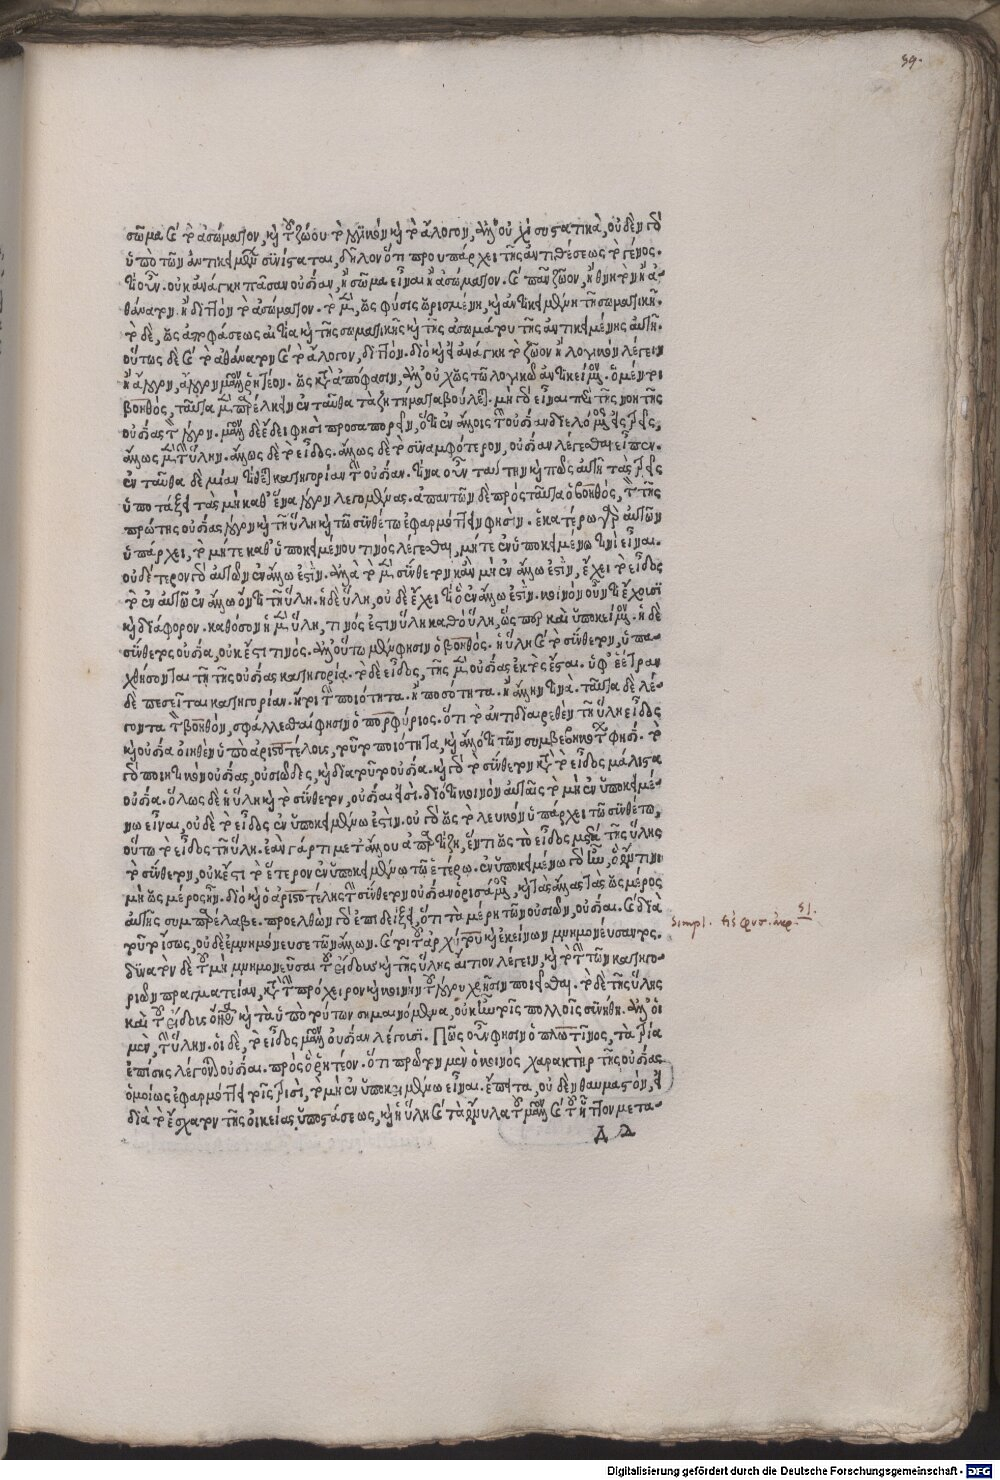 39.
σῶμα καὶ τὸ ἀσώματον, καὶ τοῦ ζώου τὸ λογικὸν καὶ τὸ ἄλογον, ἀλλ' οὐχὶ συστατικὰ, οὐδὲν γὰρ
ὑπὸ τῶν ἀντικειμένων συνίσταται, δῆλον ὅτι προυπάρχει τῆς ἀντιθέσεως τὸ γένος.
τί οὖν. οὐκ ἀνάγκη πᾶσαν οὐσίαν, ἢ σῶμα εἶναι ἢ ἀσώματον. καὶ πᾶν ζῶον, ἢ θνητὸν ἢ ἀ-
θάνατον. ἢ διττὸν τὸ ἀσώματον. τὸ μὲν, ὡς φύσις ὡρισμένη, καὶ ἀντικειμένη τῇ σωματικῇ.
τὸ δὲ, ὡς ἀπόφασις αἰτία καὶ τῆς σωματικῆς καὶ τῆς ἀσωμάτου τῆς ἀντικειμένης αὐτῇ.
οὕτως δὲ καὶ τὸ ἀθάνατον καὶ τὸ ἄλογον, διττόν. διὸ καὶ εἰ ἀνάγκη τὸ ζῶον ἢ λογικὸν λέγειν
ἢ ἄλογον, ἄλογον μᾶλλον ῥητέον. ὡς κατὰ ἀπόφασιν, ἀλλ' οὐχ ὡς τῶ λογικῶ ἀντικείμενον. ὁ μέντοι
βοηθὸς, ταῦτα μὲν παρέλκειν ἐνταῦθα τὰ ζητήματα βούλεται. μὴ γὰρ εἶναι περὶ τῆς νοητῆς
οὐσίας τὸν λόγον. μᾶλλον δὲ ἔδει φησὶ προσαπορεῖν, ὅτι ἐν ἄλλοις τὴν οὐσίαν διελόμενος εἰς τρεῖς,
ἄλλως μὲν τὴν ὕλην. ἄλλως δὲ τὸ εἶδος. ἄλλως δὲ τὸ συναμφότερον, οὐσίαν λέγεσθαι εἶπεν.
ἐνταῦθα δὲ μίαν τίθεται κατηγορίαν τὴν οὐσίαν. τίνα οὖν ταύτην καὶ πῶς αὐτῇ τὰς τρεῖς
ὑποτάξει τὰς μὴ καθ' ἕνα λόγον λεγομένας. ἀπαντῶν δὲ πρὸς ταῦτα ὁ βοηθὸς, τὸν τῆς
πρώτης οὐσίας λόγον καὶ τῇ ὕλῃ καὶ τῶ συνθέτω ἐφαρμόττειν φησίν. ἑκατέρω γὰρ αὐτῶν
ὑπάρχει, τὸ μήτε καθ' ὑποκειμένου τινὸς λέγεσθαι, μήτε ἐν ὑποκειμένω τινὶ εἶναι.
οὐδέτερον γὰρ αὐτῶν ἐν ἄλλω ἐστὶν. ἀλλὰ τὸ μὲν σύνθετον κἂν μὴ ἐν ἄλλω ἐστὶν, ἔχει τὸ εἶδος
τὸ ἐν αὐτῶ ἐν ἄλλω ὄντι τῇ ὕλῃ. ἡ δὲ ὕλη, οὐδὲ ἔχει τι ὃ ἐν ἄλλω ἐστὶν. κοινὸν οὖν τι ἔχουσι
καὶ διάφορον. καθόσον ἡ μὲν ὕλη, τινός ἐστιν ὕλη καθὸ ὕλη, ὥσπερ καὶ ὑποκείμενον. ἡ δὲ
σύνθετος οὐσία, οὐκ ἔστι τινός. ἀλλ' οὕτω μέν φησιν ὁ βοηθὸς. ἡ ὕλη καὶ τὸ σύνθετον, ὑπα-
χθήσονται τῇ τῆς οὐσίας κατηγορία. τὸ δὲ εἶδος, τῆς μὲν οὐσίας ἐκτὸς ἔσται. ὑφ' ἑτέραν
δὲ πεσεῖται κατηγορίαν. ἤτοι τὴν ποιότητα. ἢ ποσότητα. ἢ ἄλλην τινὰ. ταῦτα δὲ λέ-
γοντα τὸν βοηθὸν, σφάλλεσθαί φησιν ὁ πορφύριος. ὅτι τὸ ἀντιδιαιρεθὲν τῇ ὕλῃ εἶδος
καὶ οὐσία ῥηθὲν ὑπὸ ἀριστοτέλους, τοῦτο ποιότητα, καὶ ἄλλό τι τῶν συμβεβηκότων φησί. τὸ
γὰρ ποιητικὸν οὐσίας, οὐσιῶδες, καὶ διὰ τοῦτο οὐσία. καὶ γὰρ τὸ σύνθετον κατὰ τὸ εἶδος μάλιστα
οὐσία. ὅλως δὲ ἡ ὕλη καὶ τὸ σύνθετον, οὐσίαι εἰσὶ. διότι κοινὸν αὐταῖς τὸ μὴ ἐν ὑποκειμέ-
νω εἶναι, οὐδὲ τὸ εἶδος ἐν ὑποκειμένω ἐστὶν. οὐ γὰρ ὡς τὸ λευκὸν ὑπάρχει τῶ συνθέτω,
οὕτω τὸ εἶδος τῇ ὕλῃ. ἐὰν γάρ τι μετ' ἄλλου ἀπαρτίζη, ἕν τι ὡς τὸ εἶδος μετὰ τῆς ὕλης
τὸ σύνθετον, οὐκ ἔστι τὸ ἕτερον ἐν ὑποκειμένω τῶ ἑτέρω. ἐν ὑποκειμένω γὰρ ἦν, ὃ ἔν τινι
μὴ ὡς μέρος ἦν. διὸ καὶ ὁ ἀριστοτέλης τὴν σύνθετον οὐσίαν ὁρισάμενος, καὶ τὰς ἄλλας τὰς ὡς μέρος
αὐτῆς συμπαρέλαβε. προελθὼν γὰρ ἐπιδείξει, ὅτι τὰ μέρη τῶν οὐσιῶν, οὐσίαι. καὶ διὰ
τοῦτο ἴσως, οὐδὲ ἐμνημόνευσε τῶν ἄλλων. καίτοι τὸν ἀρχύτου καὶ ἐκείνων μνημονεύσαντος.
δυνατὸν δὲ τοῦ μὴ μνημονεῦσαι τοῦ εἴδους καὶ τῆς ὕλης αἴτιον λέγειν, καὶ τὸ τὴν τῶν κατηγο-
ριῶν πραγματείαν, κατὰ τὴν πρόχειρον καὶ κοινὴν τοῦ λόγου χρῆσιν ποιεῖσθαι. τὸ δὲ τῆς ὕλης
καὶ τοῦ εἴδους ὄνομα καὶ τὰ ὑπὸ τούτων σημαινόμενα, οὐκ ἦν τοῖς πολλοῖς συνήθη. ἀλλ' οἱ
μὲν, τὴν ὕλην. οἱ δὲ, τὸ εἶδος μᾶλλον οὐσίαν λέγουσι. Πῶς οὖν φησιν ὁ πλωτῖνος, τὰ τρία
ἐπίσης λέγονται οὐσίαι. πρὸς ὃ ῥητέον. ὅτι πρῶτον μὲν ὁ κοινὸς χαρακτὴρ τῆς οὐσίας
ὁμοίως ἐφαρμόττει τοῖς τρισὶ, τὸ μὴ ἐν ὑποκειμένω εἶναι. ἔπειτα, οὐδὲν θαυμαστὸν, εἰ
διὰ τὸ ἔσχατον τῆς οἰκείας ὑποστάσεως, καὶ ἡ ὕλη καὶ τὰ ἔνυλα τοῦ μᾶλλον καὶ τοῦ ἧττον μετα-
Δ 2
Simpl. εἰς φυσ. ἀκρ. 51.
Digitalisierung gefördert durch die Deutsche Forschungsgemeinschaft - DFG